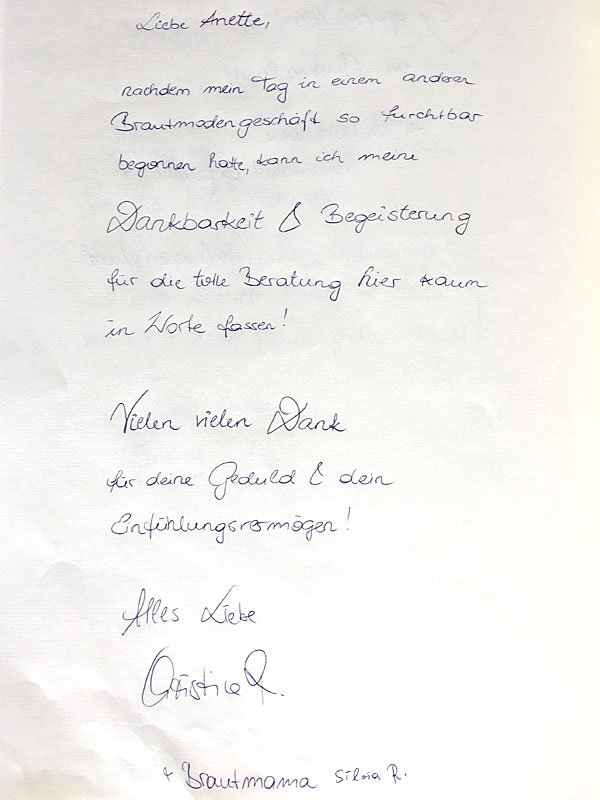 Liebe Anette,
nachdem mein Tag in einem anderen
Brautmodengeschäft so furchtbar
begonnen hatte, kann ich meine
Dankbarkeit & Begeisterung
für die tolle Beratung hier kaum
in Worte fassen!
Vielen vielen Dank
für deine Geduld & dein
Einfühlungsvermögen!
Alles Liebe
Christina R.
+ Brautmama Silvia R.